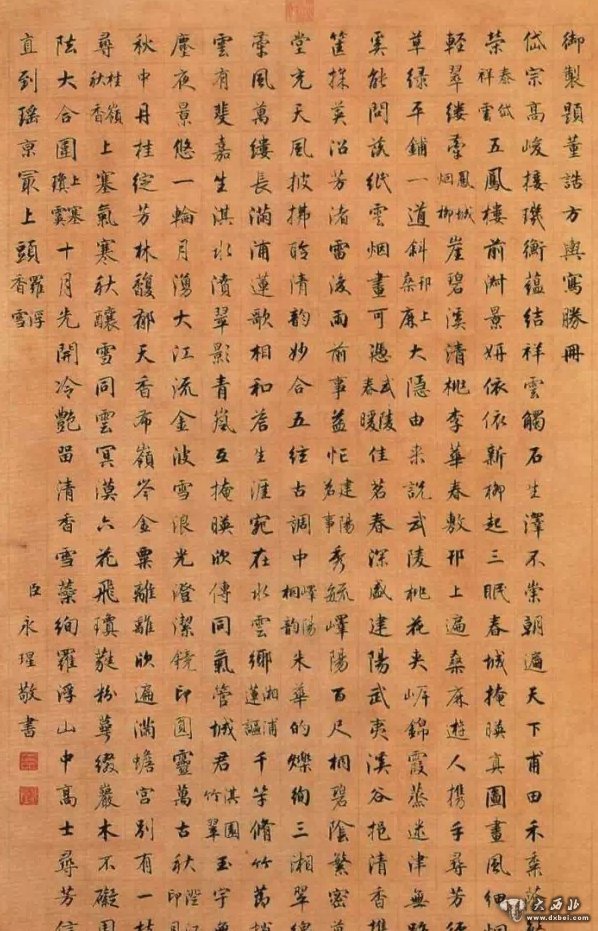 御製題董誥方輿寫勝冊
岱宗高峻接璣衡蘊結祥雲觸石生澤不崇朝遍天下甫田禾黍
榮泰岱祥雲五鳳樓前淑景妍依依新柳起三眠春城掩暎真圖畫風細烟
輕翠縷牽鳳城烟柳崖碧溪清桃李華春敷邗上遍桑麻遊人携手尋芳徑
草綠平鋪一道斜邗上桑麻大隱由来説武陵桃花夾岸錦霞蒸迷津無路
奚能問茲紙雲烟畫可憑武陵春暖佳茗春深盛建陽武夷溪谷挹清香携
筐採英沿芳渚雷後雨前事益忙建陽茗事秀毓嶧陽百尺桐碧陰繁密
堂充天風披拂聆清韵妙合五絃古調中嶧陽桐韵朱華的爍絢三湘翠
牽風萬縷長滿浦蓮歌相和答生涯宛在水雲鄉湘浦蓮謳千竿脩竹萬
雲有斐嘉生淇水濆翠影青嵐互掩暎欣傳同氣管城君淇園竹翠玉宇無
塵夜景悠一輪月湧大江流金波雪浪光澄潔鏡印圓靈萬古秋澄印
秋中月桂綻芳林馥郁天香布嶺岑金粟離離欣遍滿蟾宮別有一枝
尋桂嶺秋香上塞氣寒秋釀雪同雲冥漠六花飛瓊蕤粉萼綴巖木不礙
大合圍上塞瓊十月先開冷艷留清香雪蘂絢羅浮山中高士尋芳信
直到瑤京最上頭羅浮香雪
臣永瑆敬書
大西北
www.dxbei.com